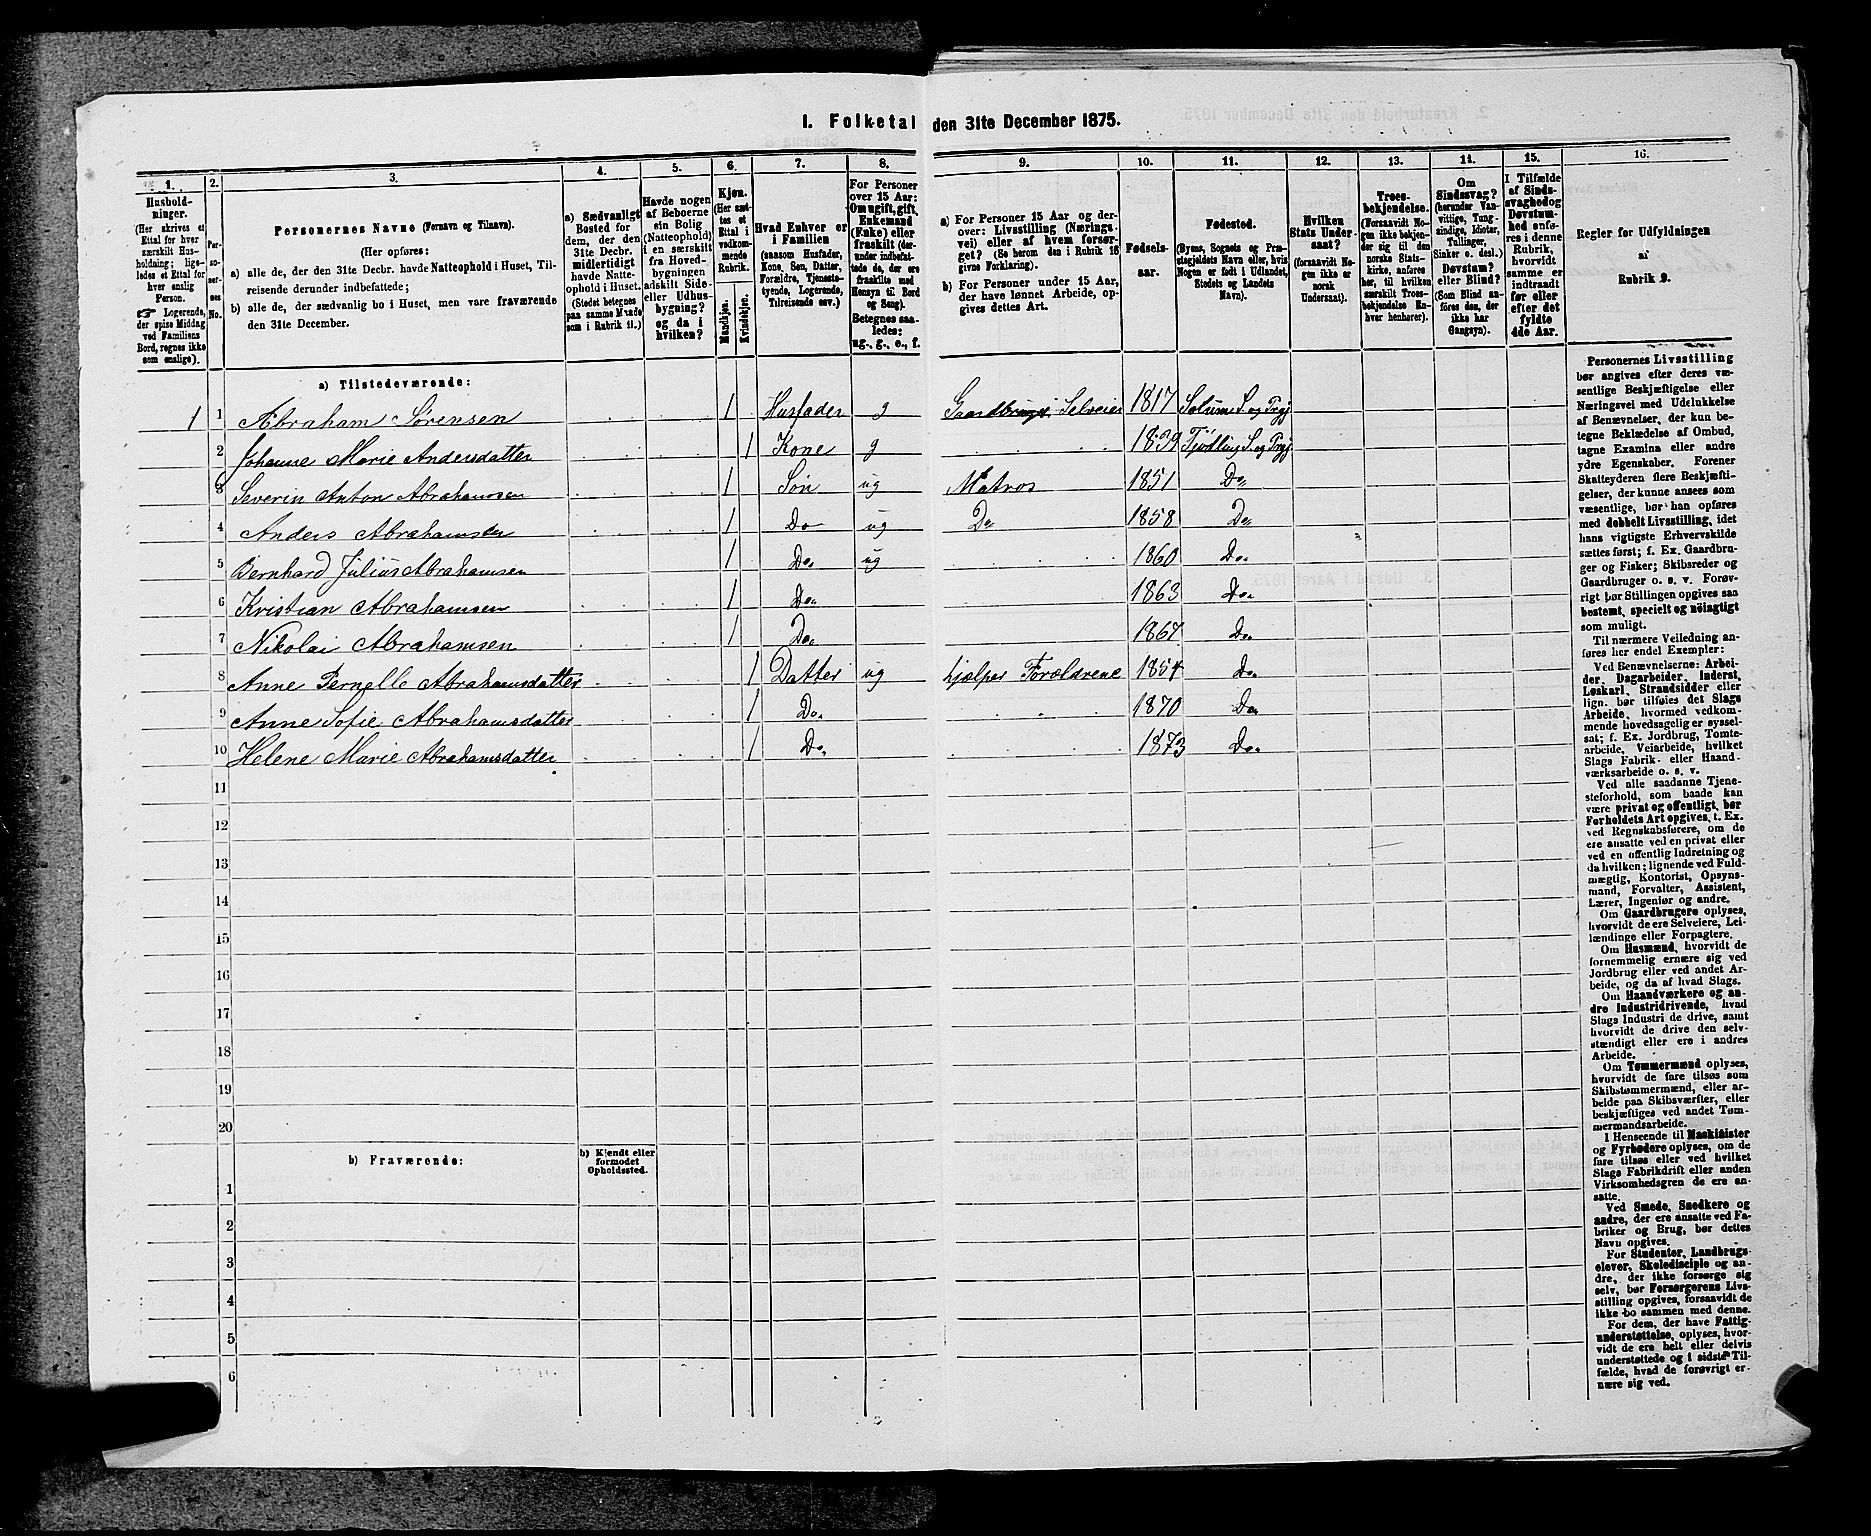 I. Folketal den 31te December 1875.
1. 2. 3. 4. 5. 6. 7. 8. 9. 10. 11. 12. 13. 14. 15. 16.
Hushold-
ninger.
(Her skrives et
Ettal for hver
særskilt Hus-
holdning; lige-
ledes et Ettal for
hver enslig
Person.
☞ Logerende,
der spise Middag
ved Familiens
Bord, regnes ikke
som enslige).
Per-
so-
ner-
nes
No.
Personernes Navne (Fornavn og Tilnavn).
(Her opføres:
a) alle de, der den 31te Decbr. havde Natteophold i Huset, Til-
reisende derunder indbefattede;
b) alle de, der sædvanlig bo i Huset, men vare fraværende
den 31te December.
a) Sædvanligt
Bosted for
dem, der den
31te Decbr.
midlertidigt
havde Natte-
ophold i Huset.
(Stedet betegnes
paa samme Maade
som i Rubrik 11.)
Havde nogen
af Beboerne
ein Bolig
(Natteophold)
i en særskilt
fra Hoved-
bygningen
adskilt Side-
eller Udhus-
bygning?
og da i
hvilken?
Kjøn.
(Her sæt-
tes et
Ettal i
vedkom-
mende
Rubrik.
Mandkjøn.
Kvindekjøn.
Hvad Enhver er
i Familien
(saasom Husfader,
Kone, Søn, Datter,
Forældre, Tjeneste-
tyende, Logerende,
Tilreisende osv.)
For Personer
over 15 Aar:
Om ugift, gift,
Enkemand
(Enke) eller
fraskilt (der-
under indbefat-
tede de, der ere
fraskilte med
Hensyn til Bord
og Seng).
Betegnes saa-
ledes:
ug., g., e., f.
a) For Personer 15 Aar og der-
over: Livsstilling (Nærings-
vei) eller af hvem forsør-
get? (Se herom den i Rubrik 16
givne Forklaring).
b) For Personer under 15 Aar,
der have lønnet Arbeide, op-
gives dettes Art.
Fødsels-
aar.
Fødested.
(Byens, Sognets og Præ-
stegjeldets Navn eller, hvis
Nogen er født i Udlandet,
Stedets og Landets
Navn).
Hvilken
Stats Under-
saat?
(forsaavidt No-
gen ikke er
norsk
Undersaat).
Troes-
bekjendelse.
(Forsaavidt No-
gen ikke bekjen-
der sig til den
norske Stats-
kirke, anføres
her, til hvilken
særskilt Troes-
bekjendelse En-
hver henhører).
Om
Sindssvag?
(herunder Van-
vittige, Tung-
sindige, Idioter,
Tullinger,
Sinker o. desl.)
Døvstum?
eller Blind?
(Som Blind an-
føres den, der
ikke har
Gangsyn).
I Tilfælde
af Sinds-
svaghed og
Døvstum-
hed enføres
i denne
Rubrik,
hvorvidt
samme er
indtraadt
før eller
efter det
fyldte
4de Aar.
Regler for Udfyldningen
af
Rubrik 9.
a) Tilstedeværende:
1 1 Abraham Sørensen 1 Husfader g Gaardbruger Selveier 1817 Solum S. og Prgj
2 Johanne Marie Andersdatter 1 Kone g Tjødling S. og Prgj
3 Severin Anton Abrahamsen 1 Søn ug Matros 1851 Do
4 Anders Abrahamsen 1 Do ug Do 1858 Do
5 Bernhard Julius Abrahamsen 1 Do ug 1860 Do
6 Kristian Abrahamsen 1 Do 1863 Do
7 Nikolai Abrahamsen 1 Do 1867 Do
8 Anne Pernelle Abrahamsdatter 1 Datter ug hjælper Forældrene 1854 Do
9 Anne Sofie Abrahamsdatter 1 Do 1870 Do
10 Helene Marie Abrahamsdatter 1 Do 1873 Do
11
12
13
14
15
16
17
18
19
20
b) Fraværende:
b) Kjendt eller
formodet
Opholdssted.
1
2
3
4
5
6
Personernes Livsstilling
bør angives efter deres væ-
sentlige Beskjæftigelse eller
Næringsvei med Udelukkelse
af Benævnelser, der kun be-
tegne Beklædelse af Ombud,
tagne Examina eller andre
ydre Egenskaber. Forener
Skatteyderen flere Beskjæfti-
gelser, der kunne ansees som
væsentlige, bør han opføres
med dobbelt Livsstilling, idet
hans vigtigste Erhvervskilde
sættes først; f. Ex. Gaardbru-
ger og Fisker; Skibsreder og
Gaardbruger o. s. v. Forøv-
rigt bør Stillingen opgives saa
bestemt, specielt og nöiagtigt
som muligt.
Til nærmere Veiledning an-
føres her endel Exempler:
Ved Benævnelserne: Arbei-
der, Dagarbeider, Inderst,
Løskarl, Strandsidder eller
lign. bør tilføies det Slags
Arbeide, hvormed vedkom-
mende hovedsagelig er syssel-
sat; f. Ex. Jordbrug, Tomte-
arbeide, Veiarbeide, hvilket
Slags Fabrik- eller Haand-
værksarbeide o. s. v.
Ved alle saadanne Tjene-
steforhold, som baade kan
være privat og offentligt, bør
Forholdets Art opgives, t. Ex.
ved Regnskabsførere, om de
ere ansatte ved en privat eller
ved en offentlig Indretning og
da hvilken; lignende ved Fuld-
mægtig, Kontorist, Opsyns-
mand, Forvalter, Assistent,
Lærer, Ingeniør og andre.
Om Gaardbrugere oplyses,
hvorvidt de ere Selveiere, Lei-
lændinge eller Forpagtere.
Om Husmænd, hvorvidt de
fornemmelig ernære sig ved
Jordbrug eller ved andet Ar-
beide, og da af hvad Slags.
Om Haandværkere og an-
dre Industridrivende, hvad
Slags Industri de drive, samt
hvorvidt de drive den selv-
stændigt eller ere i andres
Arbeide.
Om Tømmermænd oplyses,
hvorvidt de fare tilsøs som
Skibstømmermænd, eller ar-
beide paa Skibsværfter, eller
beskjæftiges ved andet Tøm-
mermandsarbeide.
I Henseende til Maskinister
og Fyrbødere oplyses, om de
fare tilsøs eller ved hvilket
Slags Fabrikdrift eller anden
Virksomhedsgren de ere an-
satte.
Ved Smede, Snedkere og
andre, der ere ansatte ved Fa-
briker og Brug, bør dettes
Navn opgives.
For Studenter, Landbrugs-
elever, Skoledisciple og an-
dre, der ikke forsørge sig
selv, bør Forsørgerens Livs-
stilling opgives, forsaavidt de
ikke bo sammen med denne.
For dem, der have Fattig-
understøttelse, oplyses, hvor-
vidt de ere helt eller delvis
understøttede og i sidste Til-
fælde, hvad de forøvrigt er-
nære sig ved.